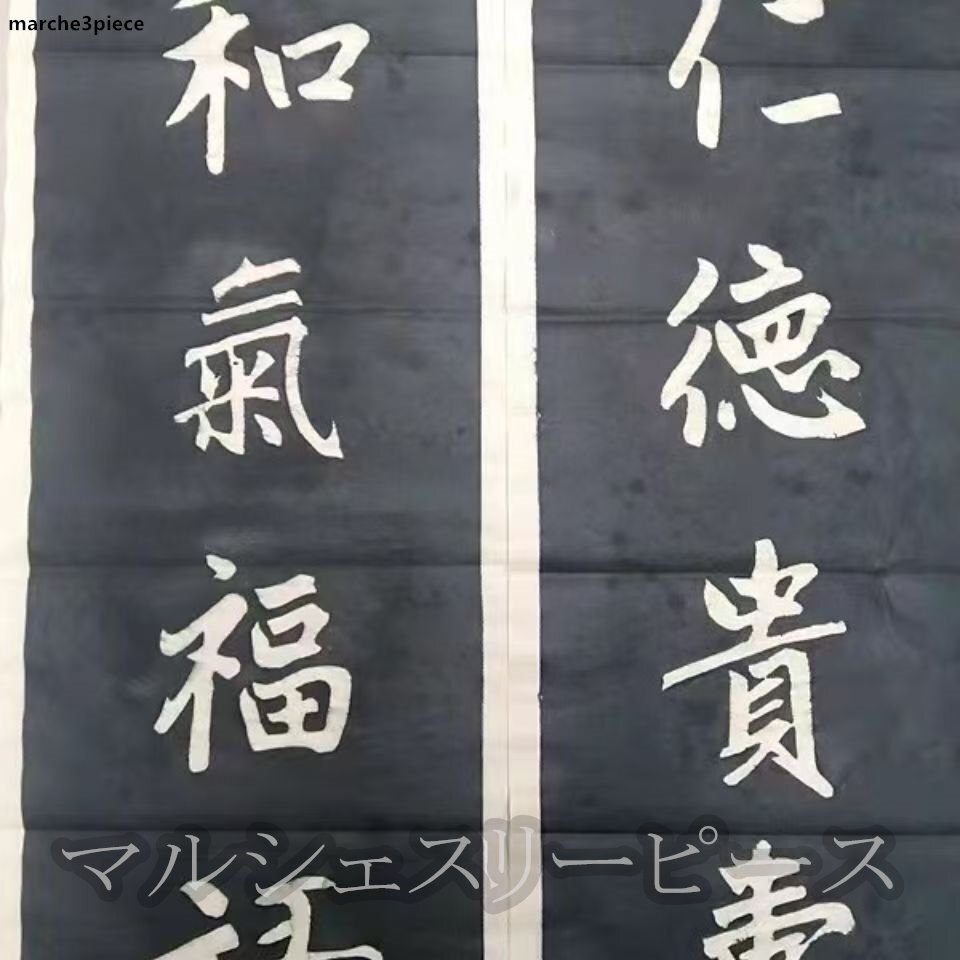 marche3piece
仁德貴壽
和氣福
マルシェスリーピース